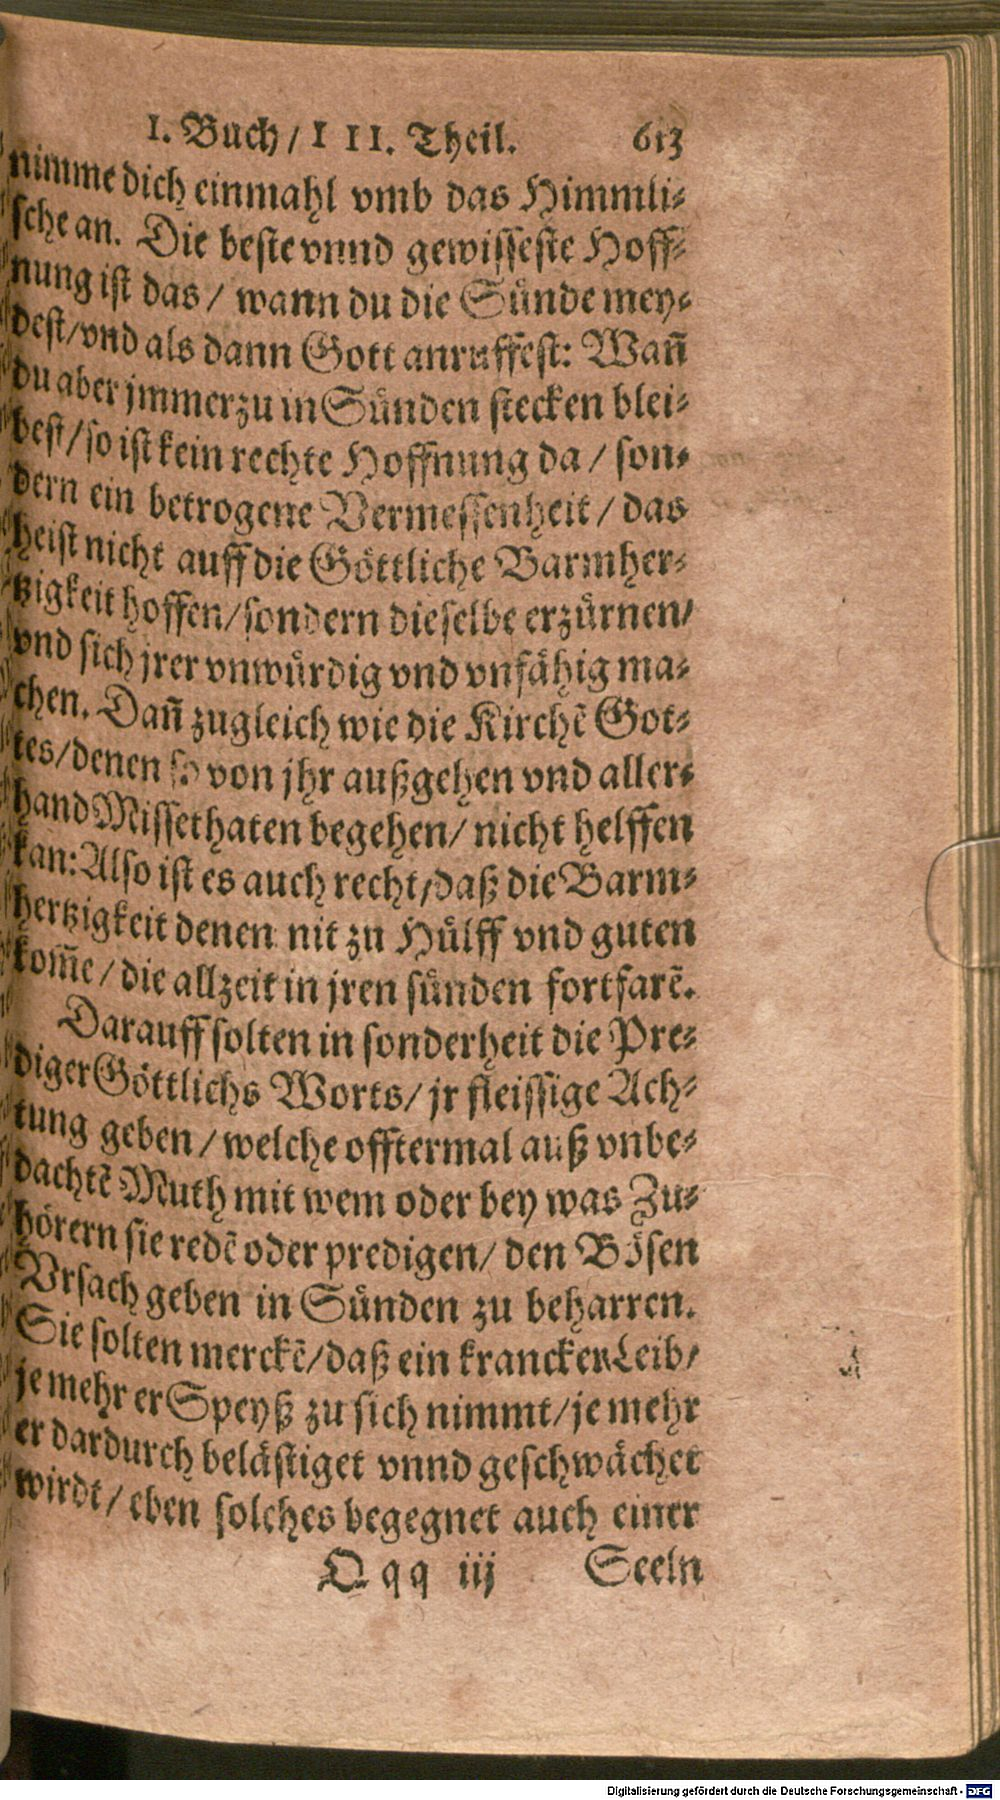 I. Buch/ III. Theil. 613
nimme dich einmahl vmb das Himmli-
sche an. Die beste vnnd gewisseste Hoff-
nung ist das/ wann du die Sünde mey-
dest/vnd als dann Gott anruffest: Wañ
du aber jmmerzu in Sünden stecken blei-
best/so ist kein rechte Hoffnung da/ son-
dern ein betrogene Vermessenheit/ das
heist nicht auff die Göttliche Barmher-
tzigkeit hoffen/sondern dieselbe erzürnen/
vnd sich jrer vnwürdig vnd vnfähig ma-
chen. Dañ zugleich wie die Kirchẽ Got-
tes/denen so von jhr außgehen vnd aller-
hand Missethaten begehen/ nicht helffen
kan: Also ist es auch recht/daß die Barm-
hertzigkeit denen nit zu Hülff vnd guten
kom̃e/die allzeit in jren sünden fortfarẽ.
Darauff solten in sonderheit die Pre-
diger Göttlichs Worts/ jr fleissige Ach-
tung geben/welche offtermal auß vnbe-
dachtẽ Muth mit wem oder bey was Zu-
hörern sie redẽ oder predigen/ den Bösen
Vrsach geben in Sünden zu beharren.
Sie solten merckẽ/daß ein krancker Leib/
je mehr er Speyß zu sich nimmt/je mehr
er dardurch belästiget vnnd geschwächet
wirdt/eben solches begegnet auch einer
Qqq iij Seeln
Digitalisierung gefördert durch die Deutsche Forschungsgemeinschaft - DFG